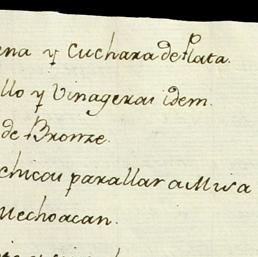 ena y Cuchara de Plata.
llo y Vinageras idem.
de Bronze.
chicou parallar a Misa
Mechoacan.